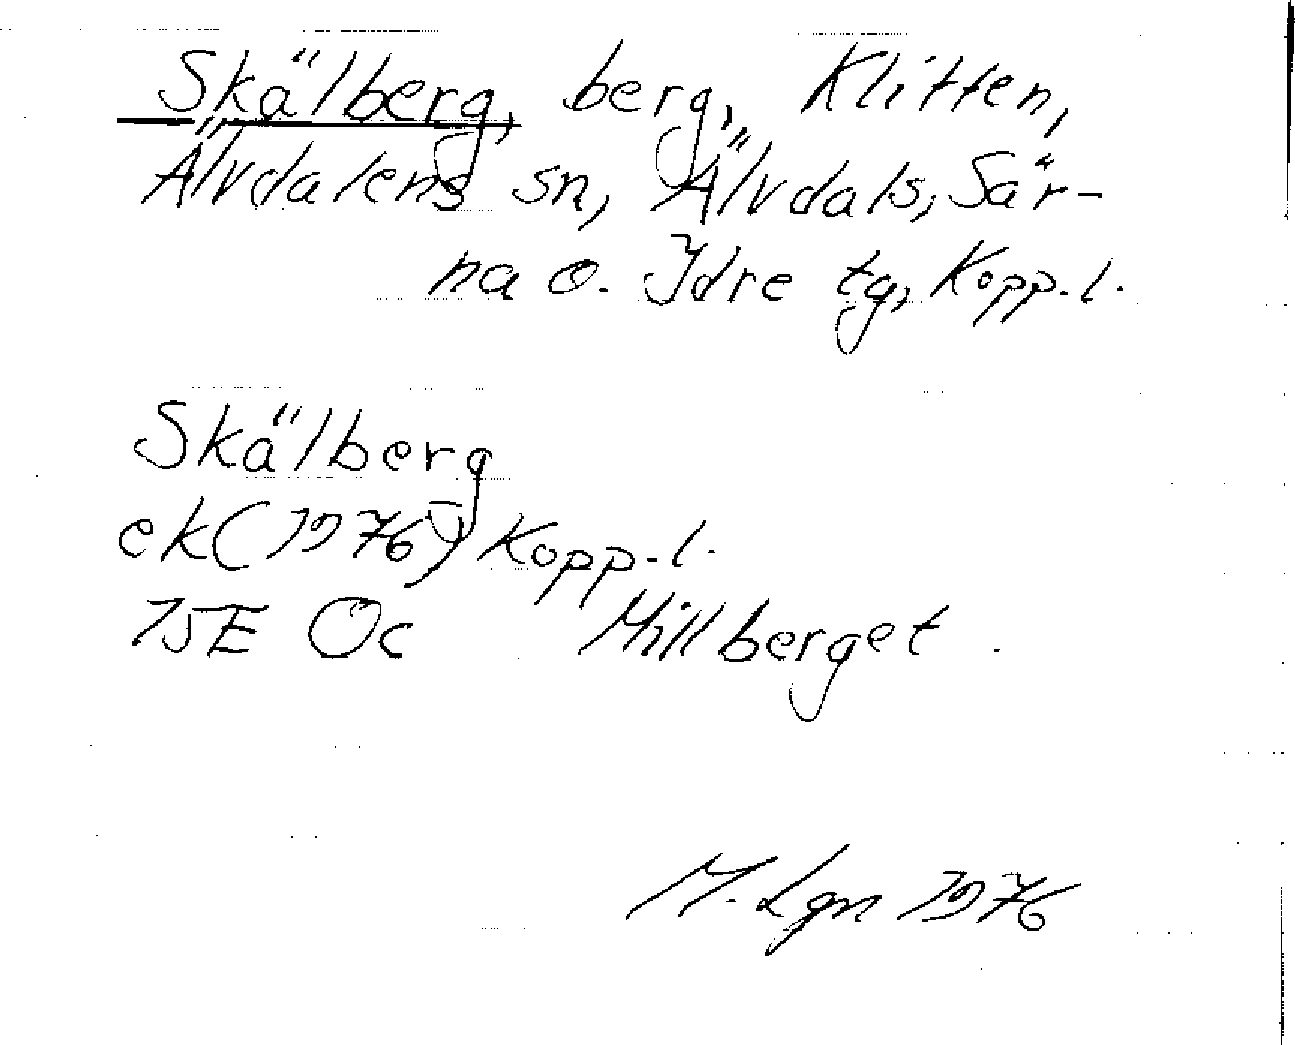 Skälberg, berg, Klitten,
Älvdalens sn, Älvdals, Sär-
na o. Idre tg, Kopp. l.
Skälberg
ek (1976) Kopp. l.
15E Oc Millberget.
M. Lgn 1976